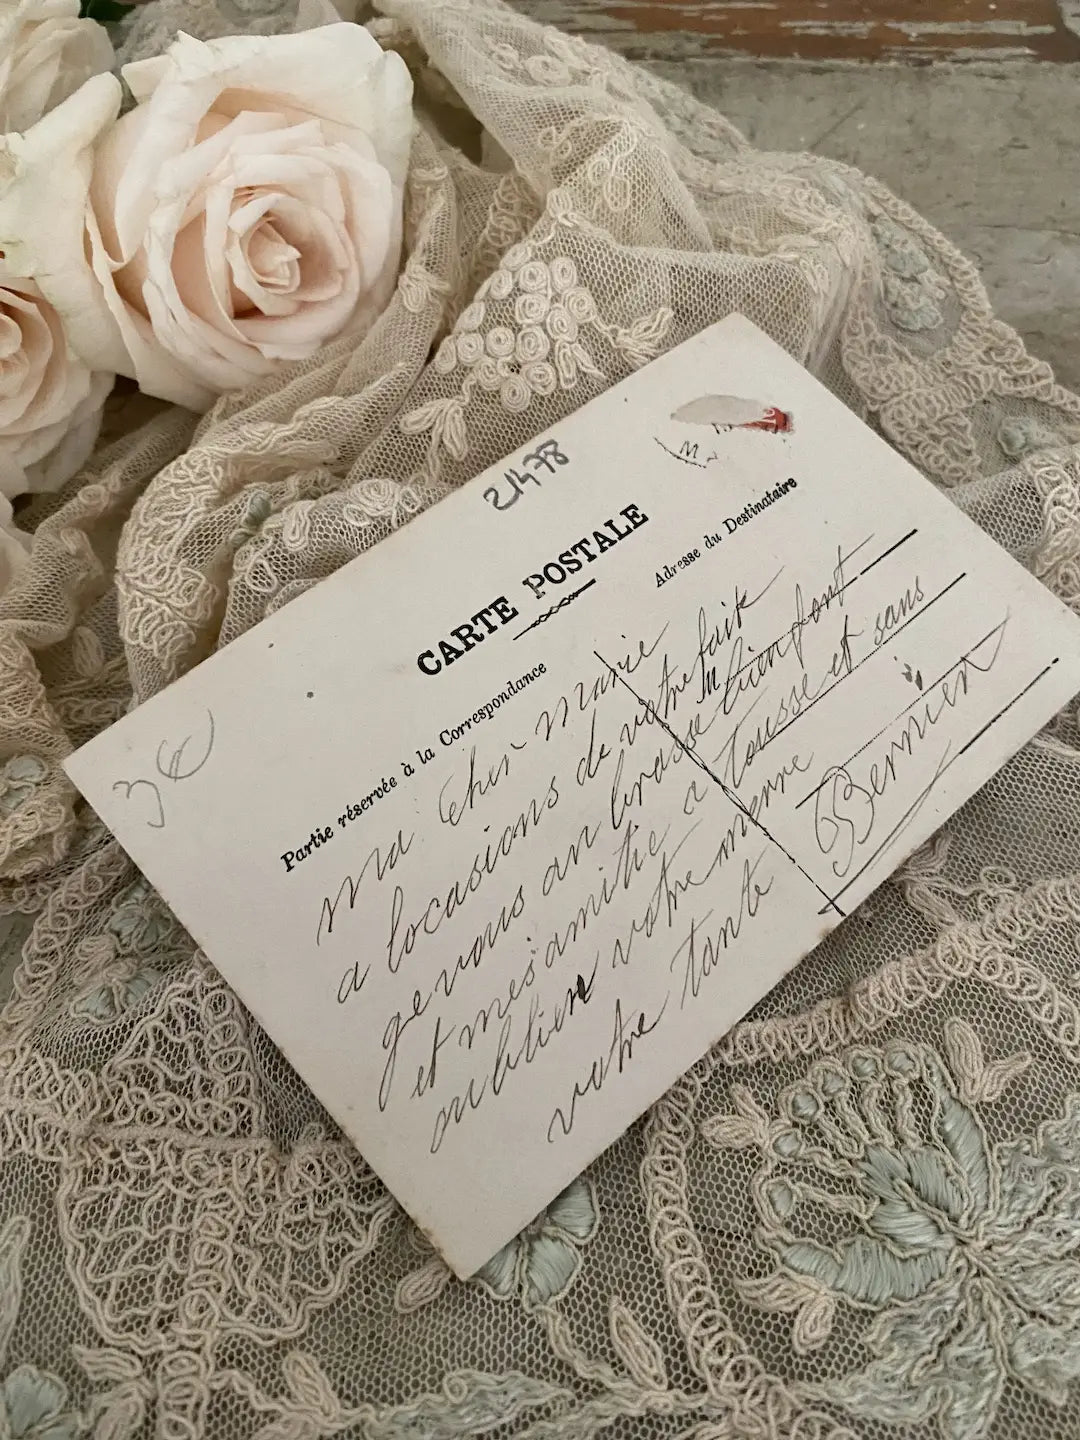 21478
CARTE POSTALE
Partie réservée à la Correspondance
Adresse du Destinataire
3€
ma cheir marie
a locasions de votre faite
ge vous an brasse bien font
et mes amitie a tousse et sans
oublien votre merre
votre tante Bernien